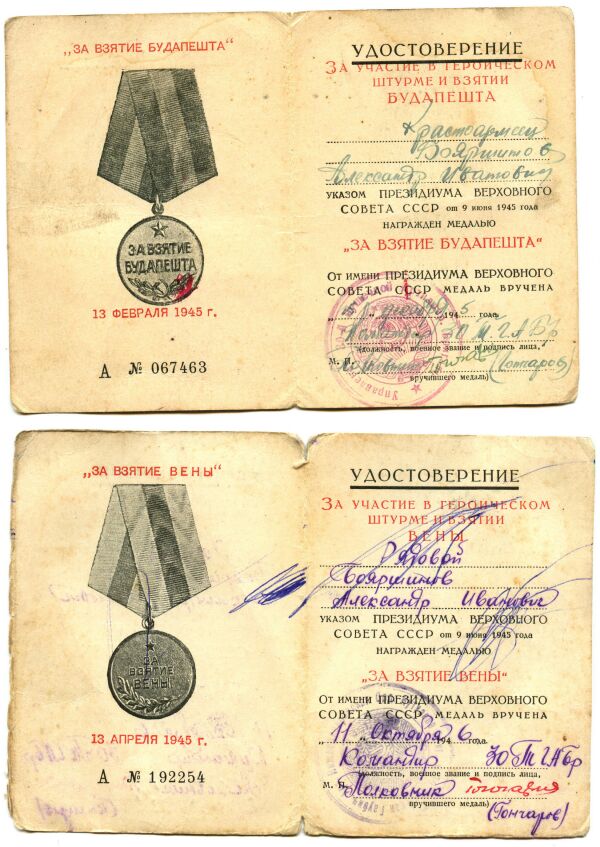 „ЗА ВЗЯТИЕ БУДАПЕШТА“
ЗА ВЗЯТИЕ
БУДАПЕШТА
13 ФЕВРАЛЯ 1945 г.
А № 067463
УДОСТОВЕРЕНИЕ
ЗА УЧАСТИЕ В ГЕРОИЧЕСКОМ
ШТУРМЕ И ВЗЯТИИ
БУДАПЕШТА
Красноармеец
Бояршинов
Александр Иванович
УКАЗОМ ПРЕЗИДИУМА ВЕРХОВНОГО
СОВЕТА СССР от 9 июня 1945 года
НАГРАЖДЕН МЕДАЛЬЮ
„ЗА ВЗЯТИЕ БУДАПЕШТА“
От имени ПРЕЗИДИУМА ВЕРХОВНОГО
СОВЕТА СССР МЕДАЛЬ ВРУЧЕНА
1945 года.
Командир 30 ТГАБр
(должность, военное звание и подпись лица,
М. П. Полковник Гончаров (Гончаров)
вручившего медаль)
„ЗА ВЗЯТИЕ ВЕНЫ“
ЗА
ВЗЯТИЕ
ВЕНЫ
13 АПРЕЛЯ 1945 г.
А № 192254
УДОСТОВЕРЕНИЕ
ЗА УЧАСТИЕ В ГЕРОИЧЕСКОМ
ШТУРМЕ И ВЗЯТИИ
ВЕНЫ
Рядовой
Бояршинов
Александр Иванович
УКАЗОМ ПРЕЗИДИУМА ВЕРХОВНОГО
СОВЕТА СССР от 9 июня 1945 года
НАГРАЖДЕН МЕДАЛЬЮ
„ЗА ВЗЯТИЕ ВЕНЫ“
От имени ПРЕЗИДИУМА ВЕРХОВНОГО
СОВЕТА СССР МЕДАЛЬ ВРУЧЕНА
„11“ Октября 1946 года.
Командир 30 ТГАБр
(должность, военное звание и подпись лица,
М. П. Полковник Гончаров
вручившего медаль)
(Гончаров)